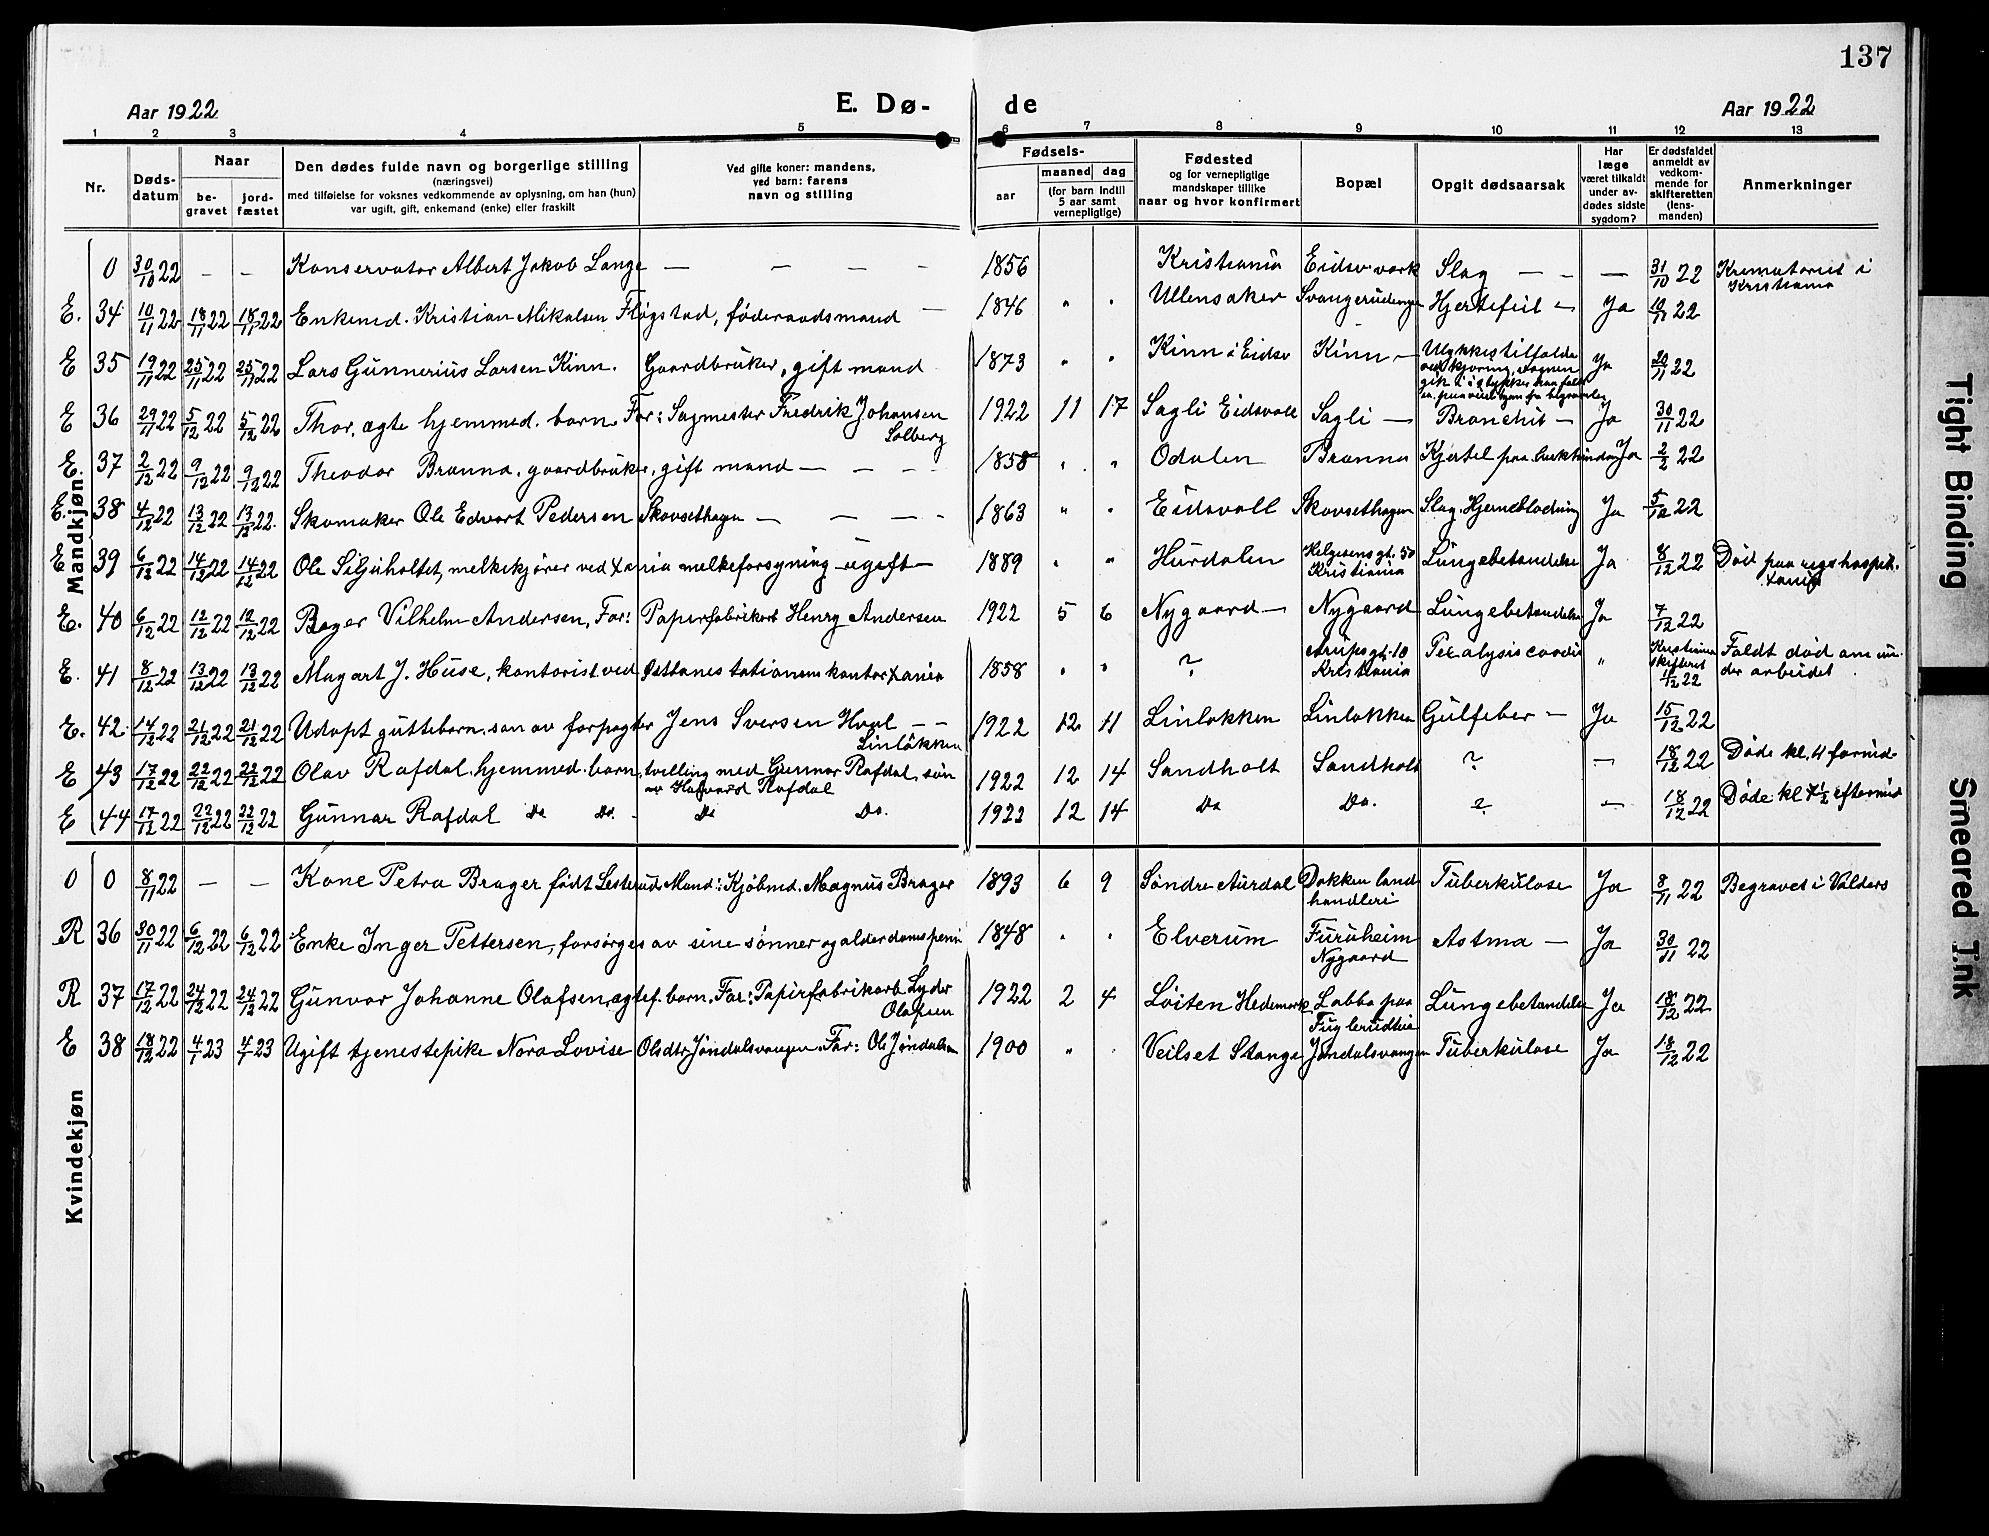 137
Aar 1922
E. Dø-
de
Aar 1922
1 2 3 4 5 6 7 8 9 10 11 12 13
Nr.
Døds-
datum
Naar
be-
gravet
jord-
fæstet
Den dødes fulde navn og borgerlige stilling
(næringsvei)
med tilføielse for voksnes vedkommende av oplysning, om han (hun)
var ugift, gift, enkemand (enke) eller fraskilt
Ved gifte koner: mandens,
ved barn: farens
navn og stilling
Fødsels-
aar
maaned dag
(for barn indtil
5 aar samt
vernepligtige)
Fødested
og for vernepligtige
mandskaper tillike
naar og hvor konfirmert
Bopæl
Opgit dødsaarsak
Har
læge
været tilkaldt
under av-
dødes sidste
sygdom?
Er dødsfaldet
anmeldt av
vedkom-
mende for
skifteretten
(lens-
manden)
Anmerkninger
Mandkjøn
0 30/10 22 – – Konservator Albert Jakob Lange – – – – 1856 Kristiania Eidsv. verk Slag – – – 31/10 22 Krematoriet i
Kristiania
E. 34 10/11 22 18/11 22 18/11 22 Enkemd. Kristian Mikalsen Fløgstad, føderaadsmand – 1846 " " Ullensaker Hjertefeil – Ja 10/11 22
E 35 19/11 22 25/11 22 25/11 22 Lars Gunnerius Larsen Kinn. Gaardbruker, gift mand 1873 " " Kinn i Eidsv Kinn – Ulykkestilfælde
ved kjøring, vognen
Ja 20/11 22
E 36 29/11 22 5/12 22 5/12 22 Thor, ægte hjemmed. barn Far: Sagmester Fredrik Johansen
Solberg
1922 11 17 Sagli Eidsvoll Sagli – Bronchit – Ja 30/11 22
E. 37 2/12 22 9/12 22 9/12 22 Theodor Brænna, gaardbruker, gift mand – – – – 1858 " " Odalen Brænna Kjertel paa Ja 2/2 22
E. 38 4/12 22 13/12 22 13/12 22. Skomaker Ole Edvart Pedersen Skovsethagen – – – – 1863 " " Eidsvoll Skovsethagen Slag. Hjerneblødning Ja 5/12 22
E 39 6/12 22 14/12 22 14/12 22 Ole Siljuholtet, melkekjører ved Xania melkeforsyning – ugift – 1889 " " Hurdalen Helgesensgt. 50
Kristiania
Lungebetændelse Ja 8/12 22 Død paa rigshospit.
Xania
E. 40 6/12 22 12/12 22 12/12 22 Roger Vilhelm Andersen, Far: Papirfabrikarb Henry Andersen 1922 5 6 Nygaard – Nygaard Lungebetændelse Ja 7/12 22
E. 41 8/12 22 13/12 22 13/12 22 Magart J. Huse, kontorist ved Østbanestationens kontor Xania 1858 " " ? Arupsgt. 18
Kristiania
Paralysis cordis " Kristiania
skifteret
11/12 22
Faldt død om un-
der arbeidet
E. 42. 14/12 22 21/12 22 21/12 22 Udøpt guttebarn, søn av forpagter Jens Iversen Hval – –
Linløkken
1922 12 11 Linløkken Linløkken Gulfeber – Ja 15/12 22
E 43 17/12 22 22/12 22 22/12 22 Olav Rafdal. hjemmed. barn, tvilling med Gunnar Rafdal, søn
av Halvard Rafdal
1922 12 14 Sandholt Sandholt ? – 18/12 22 Døde kl. 4 formid-
E 44 17/12 22 22/12 22 22/12 22 Gunnar Rafdal Do Do. Do Do. 1922 12 14 Do Do. ? – 18/12 22 Døde kl 7½ eftermid
Kvindekjøn
0 0 8/11 22 – – Kone Petra Brager født Lesterud Mand: Kjøbmd. Magnus Brager 1893 6 9 Søndre Aurdal Dokken land
handleri
Tuberkulose Ja 8/11 22 Begravet i Valders
R 36 30/11 22 6/12 22 6/12 22 Enke Inger Pettersen, forsørges av sine sønner og alderdomspens 1848 " " Elverum Furuheim
Nygaard
Astma – Ja 30/11 22
R 37 17/12 22 24/12 22 24/12 22 Gunvor Johanne Olafsen, ægtef. barn. Far: Papirfabrikarb Lyder
Olafsen
1922 2 4 Løiten Hedemark Labba paa
Fuglerudteie
Lungebetændelse Ja 18/12 22
E 38 18/12 22 4/1 23 4/1 23 Ugift tjenestepike Nora Lovise Olsdtr Jøndalsvangen. Far: Ole Jøndalen 1900 " " Veilset Stange Jøndalsvangen Tuberkulose Ja 18/12 22
Tight Binding
Smeared Ink